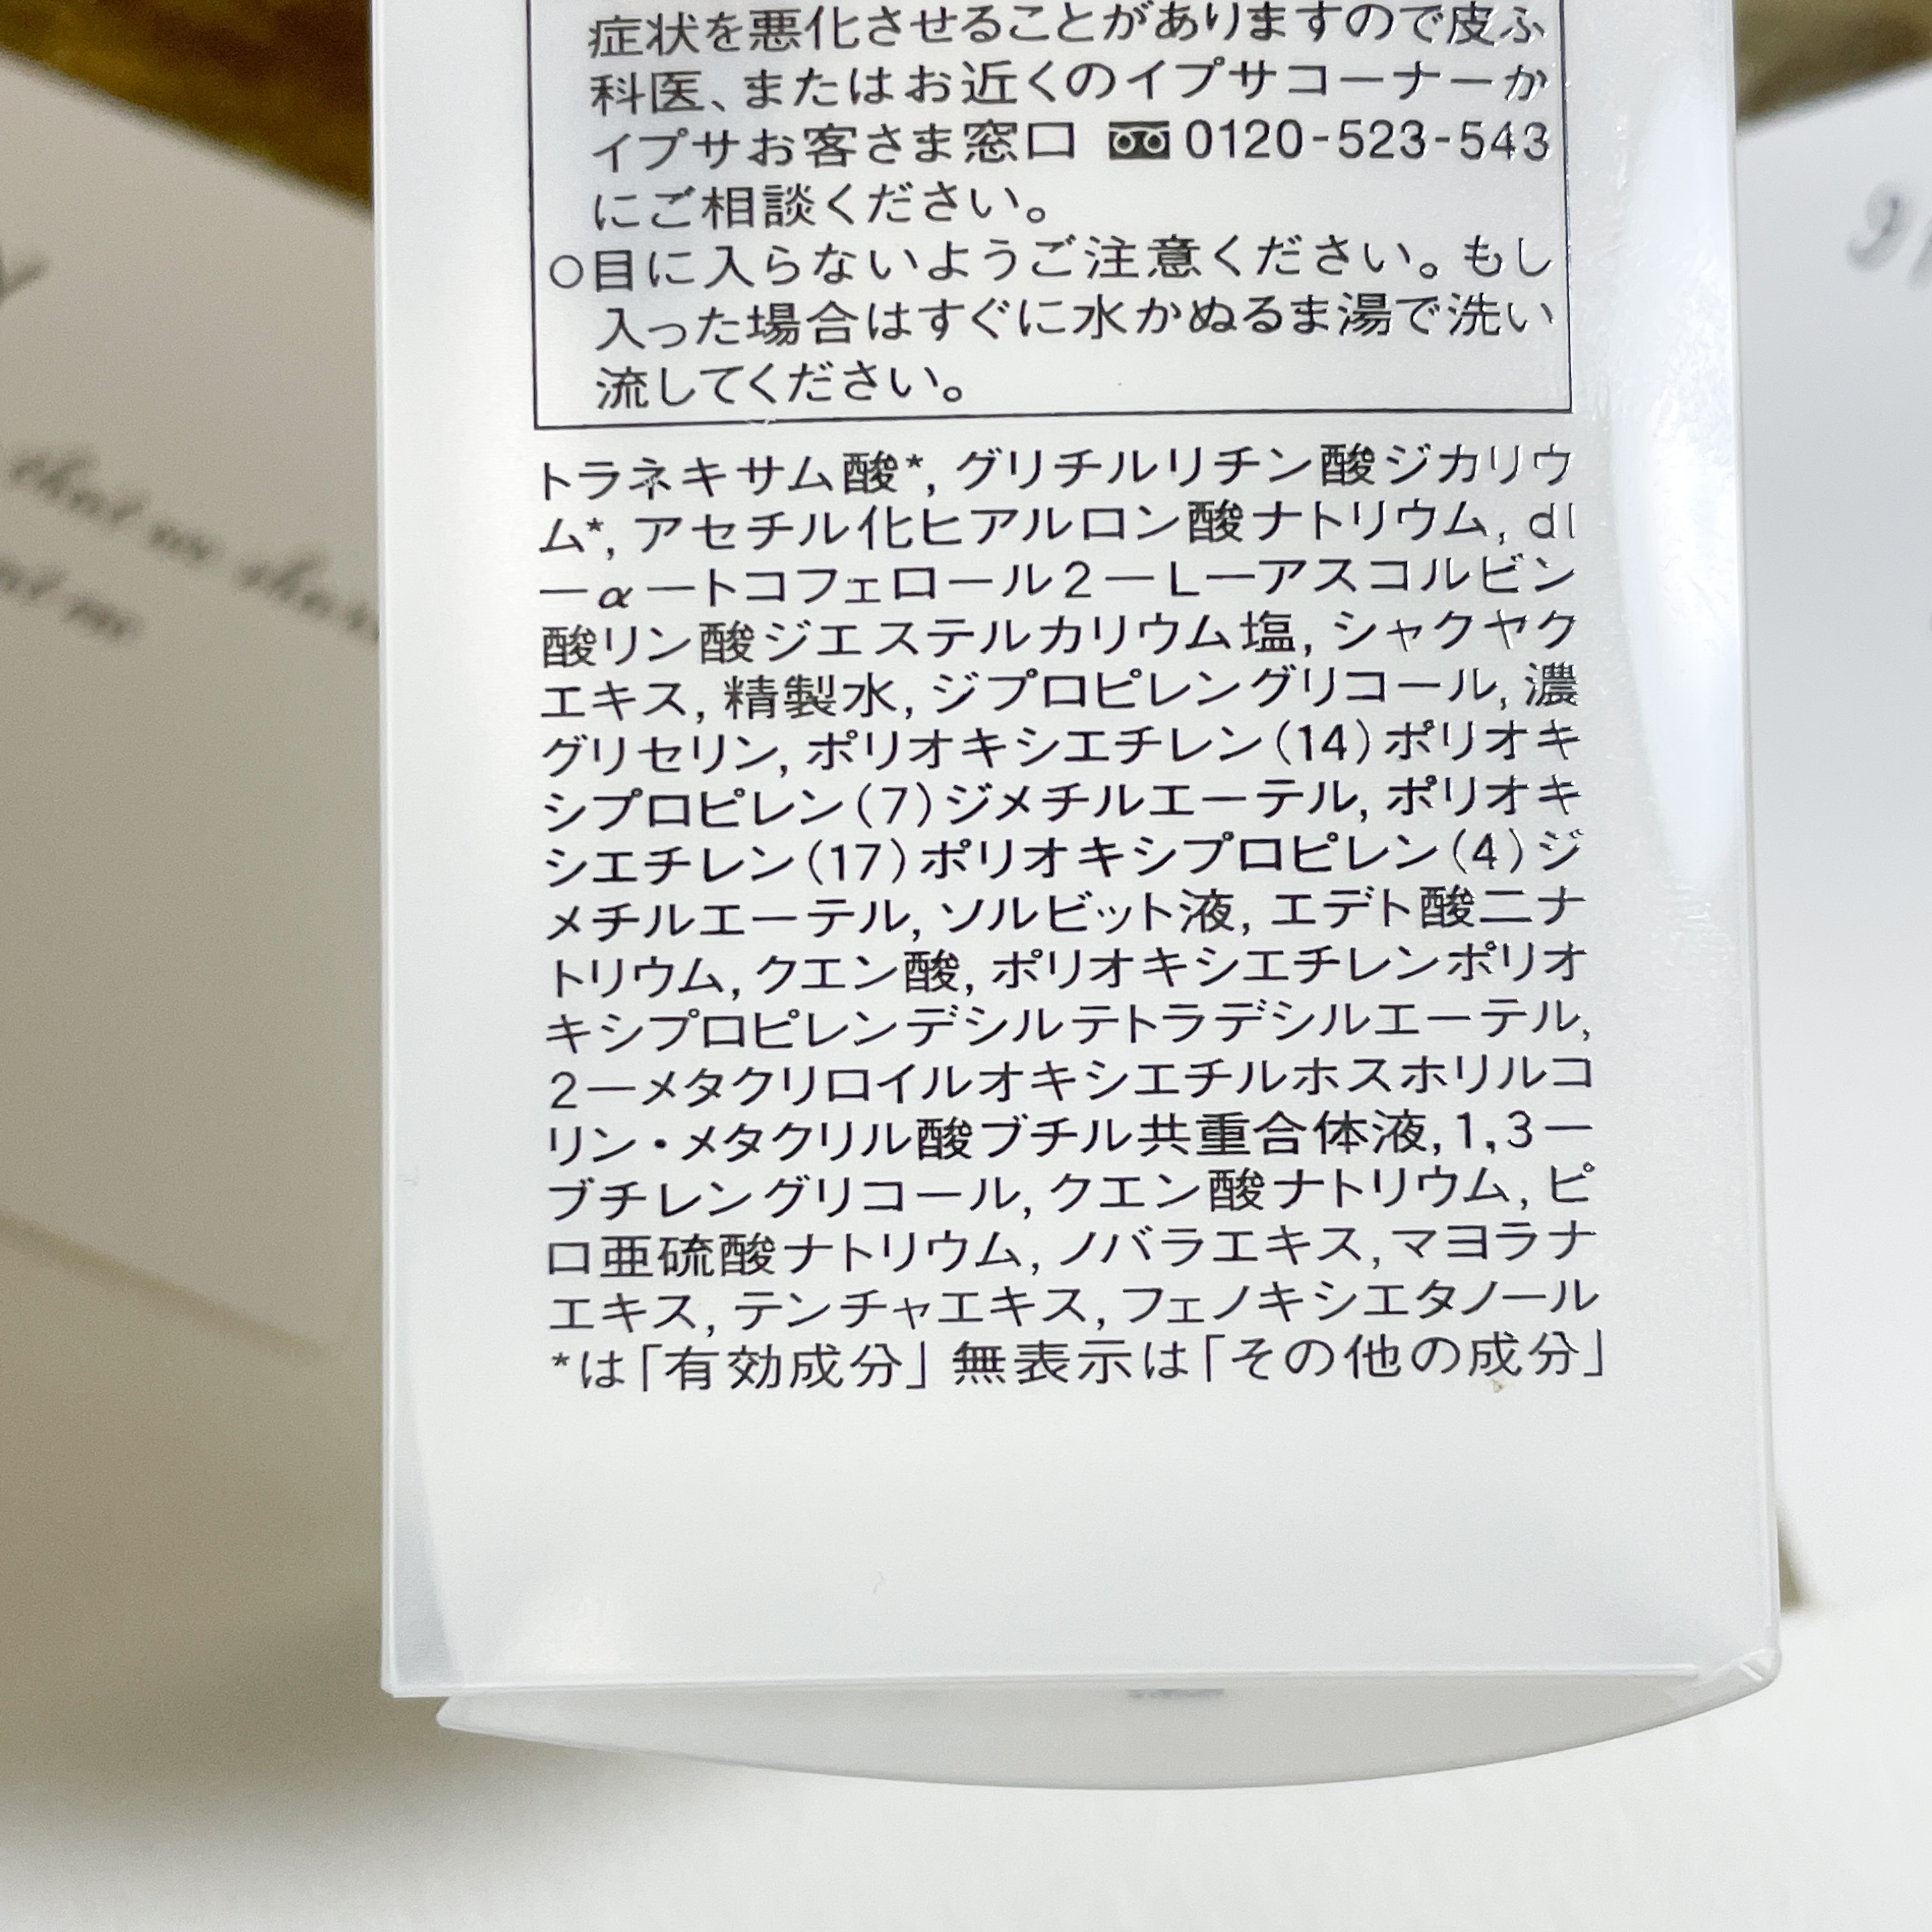 症状を悪化させることがありますので皮ふ
科医、またはお近くのイプサコーナーか
イプサお客さま窓口 0120-523-543
にご相談ください。
○目に入らないようご注意ください。もし
入った場合はすぐに水かぬるま湯で洗い
流してください。
トラネキサム酸*, グリチルリチン酸ジカリウ
ム*, アセチル化ヒアルロン酸ナトリウム, dl
―α―トコフェロール2―L―アスコルビン
酸リン酸ジエステルカリウム塩, シャクヤク
エキス, 精製水, ジプロピレングリコール, 濃
グリセリン, ポリオキシエチレン(14)ポリオキ
シプロピレン(7)ジメチルエーテル, ポリオキ
シエチレン(17)ポリオキシプロピレン(4)ジ
メチルエーテル, ソルビット液, エデト酸二ナ
トリウム, クエン酸, ポリオキシエチレンポリオ
キシプロピレンデシルテトラデシルエーテル,
2―メタクリロイルオキシエチルホスホリルコ
リン・メタクリル酸ブチル共重合体液, 1,3―
ブチレングリコール, クエン酸ナトリウム, ピ
ロ亜硫酸ナトリウム, ノバラエキス, マヨラナ
エキス, テンチャエキス, フェノキシエタノール
*は「有効成分」無表示は「その他の成分」